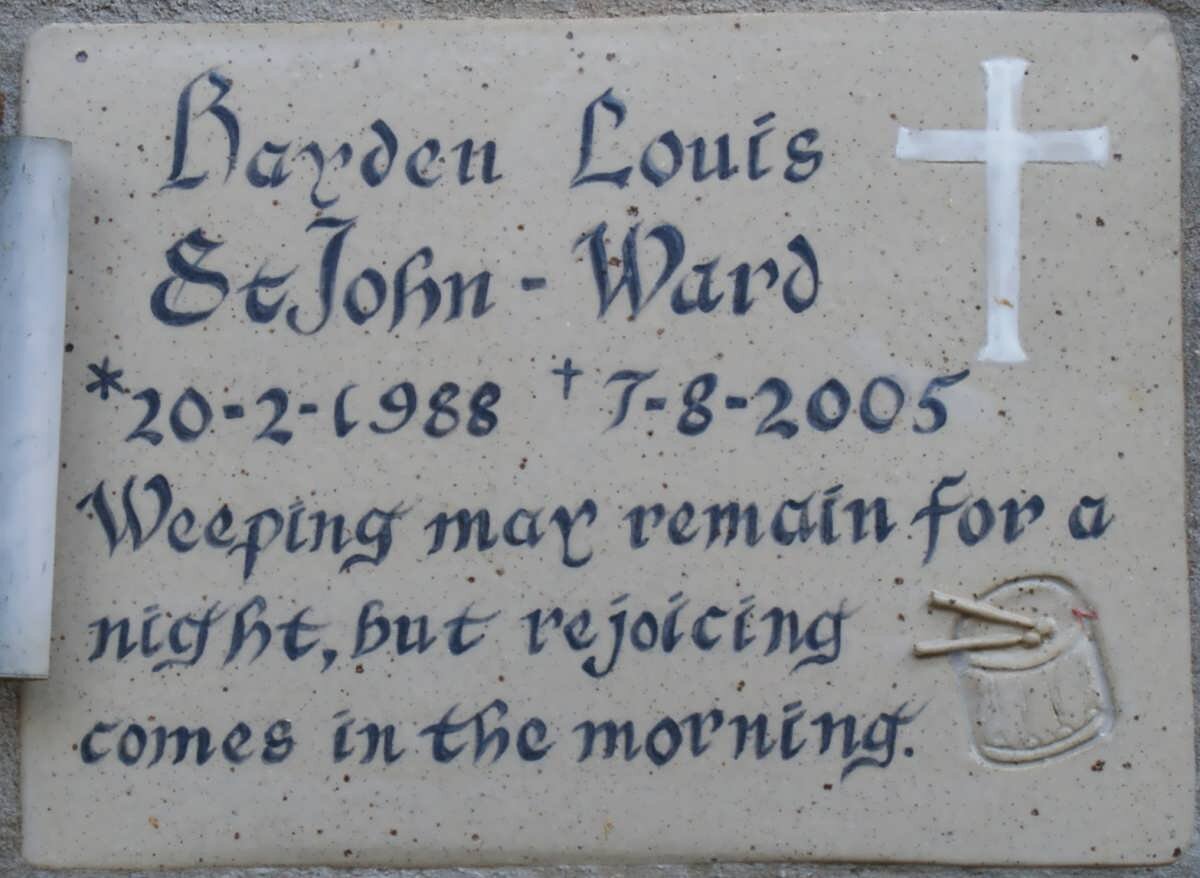 Hayden Louis
St John - Ward
*20-2-1988 †7-8-2005
Weeping may remain for a
night, but rejoicing
comes in the morning.